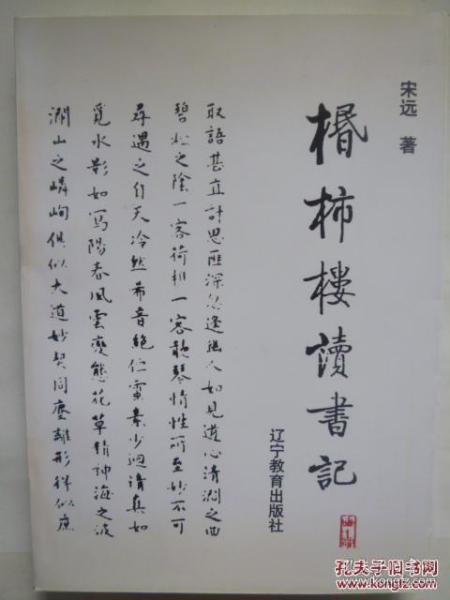 宋远 著
棔柿樓讀書記
辽宁教育出版社
取語甚直計思匪深忽逢幽人如見道心清澗之曲
碧松之陰一客荷樵一客聽琴情性所至妙不可
尋遇之自天泠然希音絕佇靈素少迴清真如
覓水影如寫陽春風雲變態花草精神海之波
瀾山之嶙峋俱似大道妙契同塵離形得似庶
孔夫子旧书网
www.kongfz.com